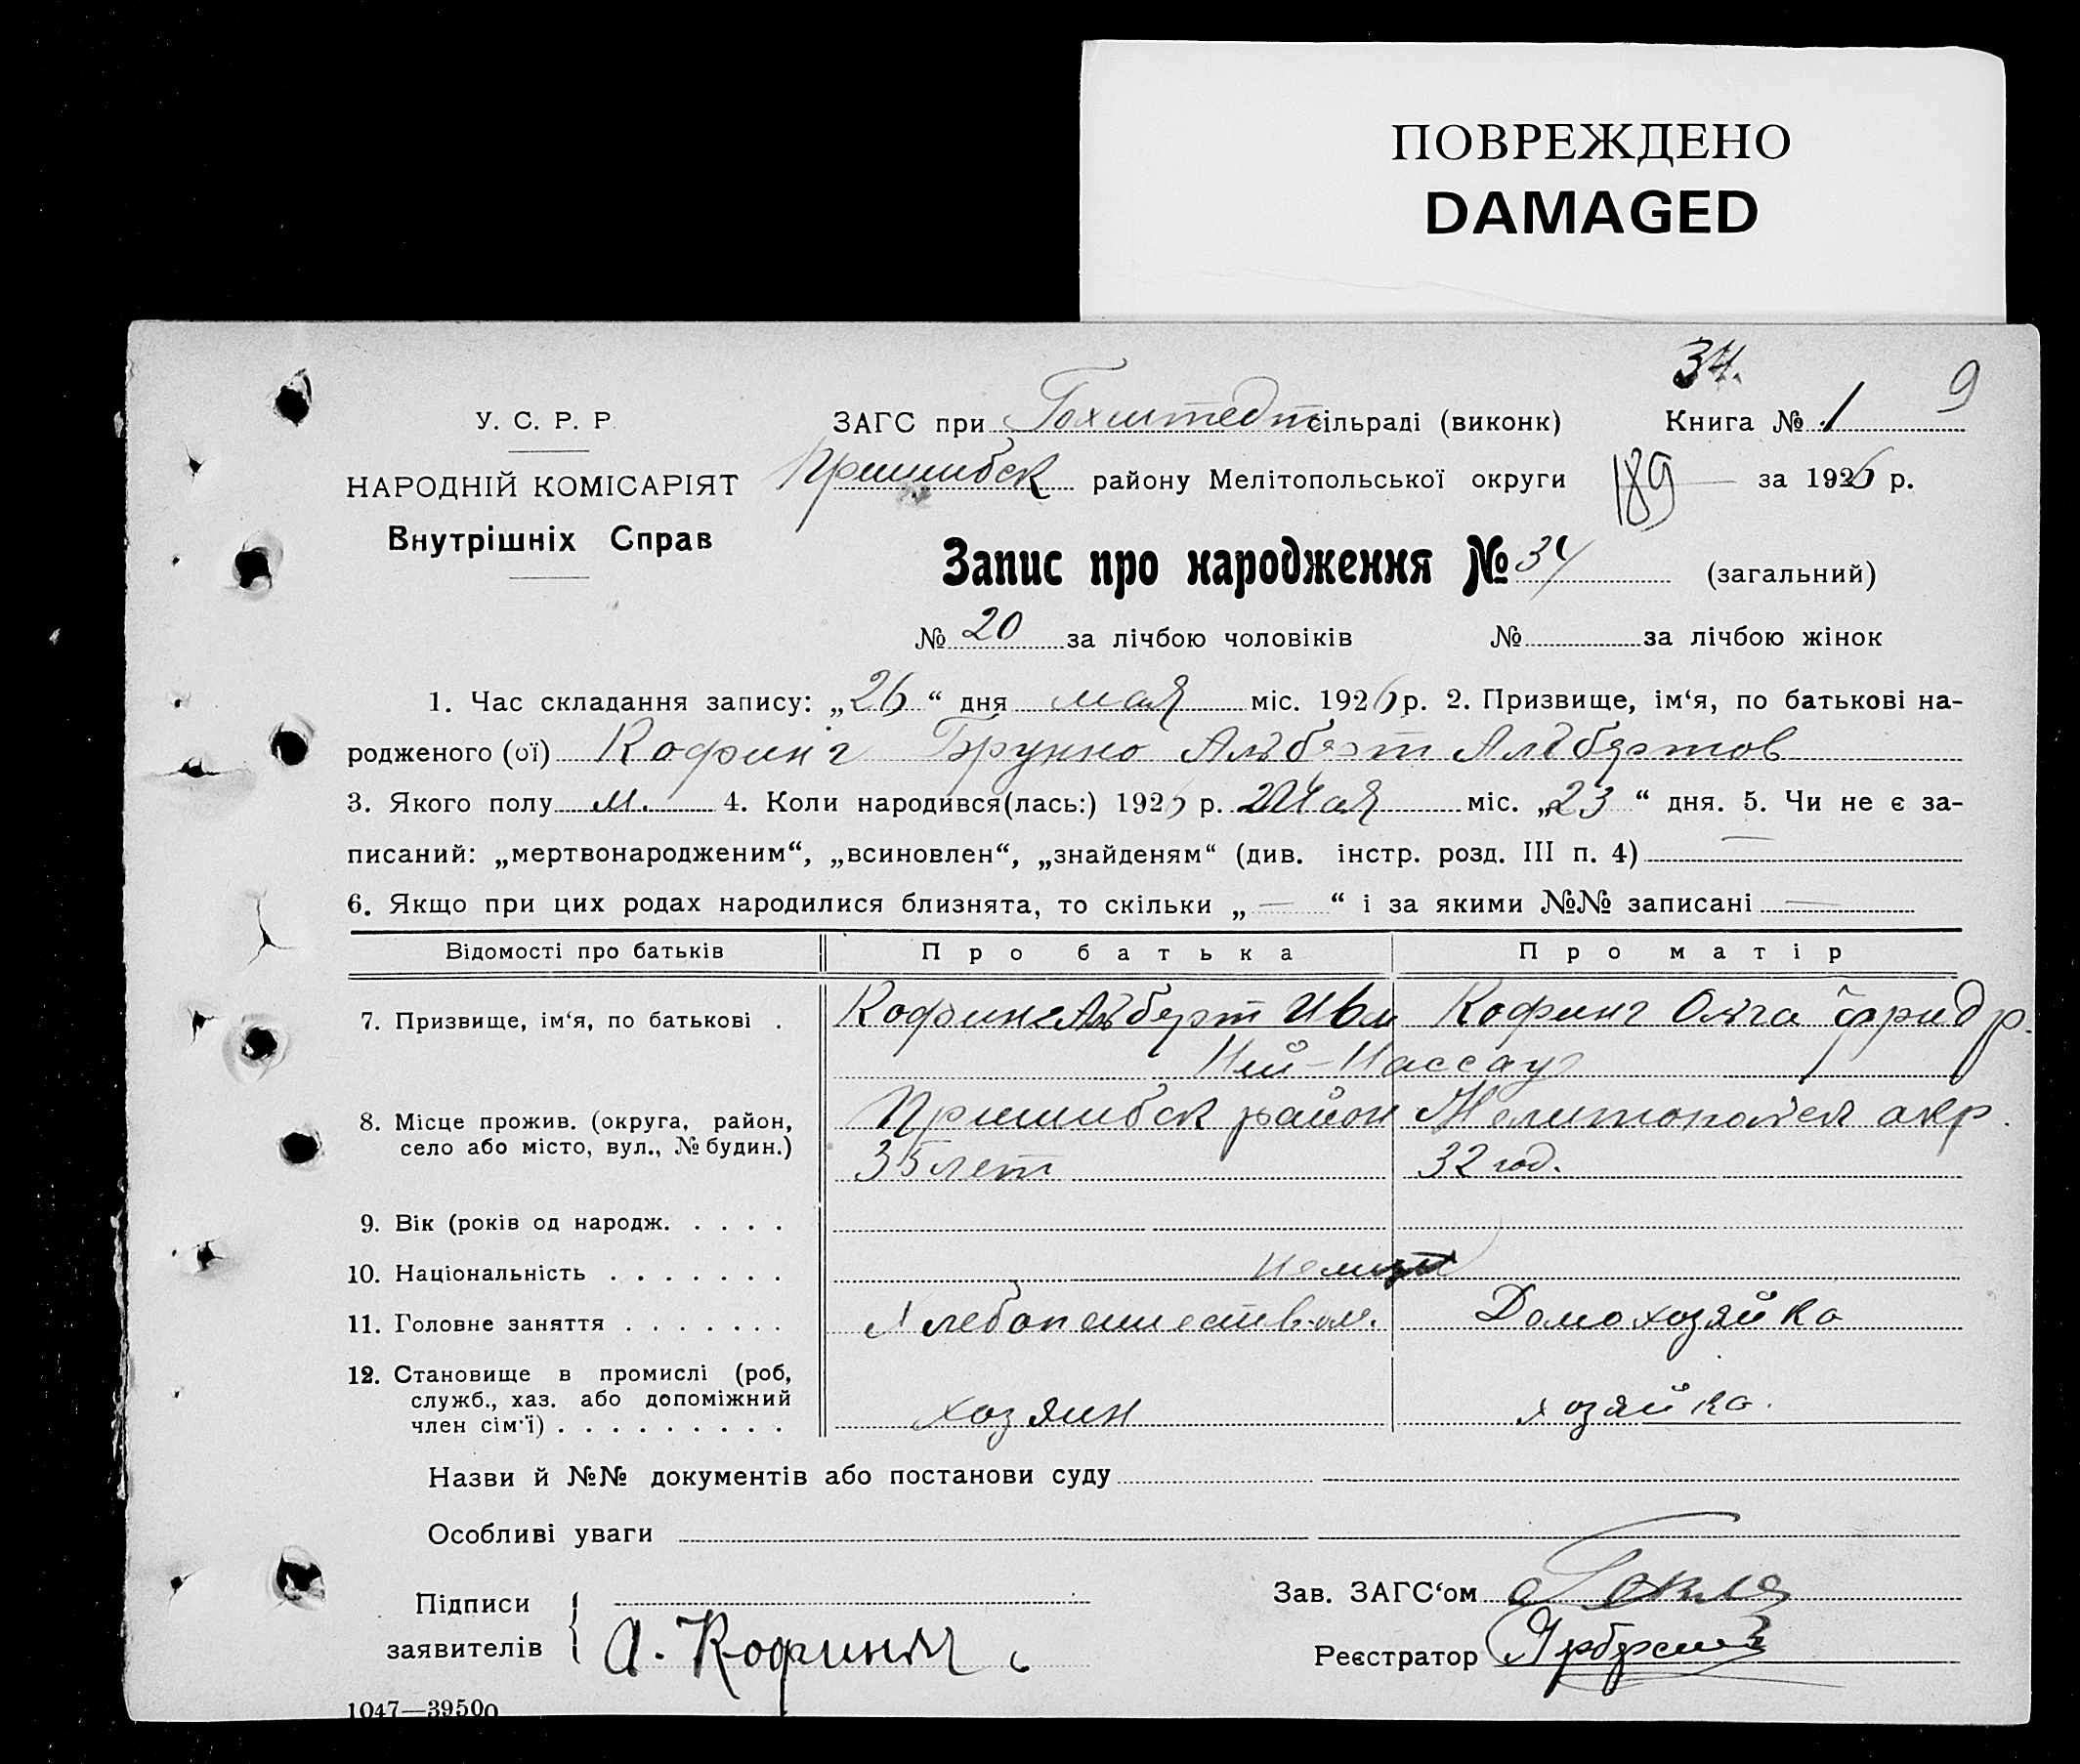 ПОВРЕЖДЕНО
DAMAGED
34.
9
У. С. Р. Р.
НАРОДНІЙ КОМІСАРІЯТ
Внутрішніх Справ
ЗАГС при Гохштедт сільраді (виконк)
Книга № 1
Пришибск району Мелітопольської округи
189
за 1926 р.
Запис про народження № 34 (загальний)
№ 20 за лічбою чоловіків № за лічбою жінок
1. Час складання запису: „26“ дня мая міс. 1926 р. 2. Призвище, ім‘я, по батькові на-
родженого (ої) Кофинг Брунно Альберт Альбертов
3. Якого полу м. 4. Коли народився(лась:) 1926 р. Мая міс. „23“ дня. 5. Чи не є за-
писаний: „мертвонародженим“, „всиновлен“, „знайденям“ (див. інстр. розд. III п. 4) —
6. Якщо при цих родах народилися близнята, то скільки „ — “ і за якими №№ записані —
Відомості про батьків Про батька Про матір
7. Призвище, ім‘я, по батькові . Кофинг Альберт Ив Кофинг Ольга Фридр.
Ней-Нассау
8. Місце прожив. (округа, район, Пришибск район Мелитопольск окр.
село або місто, вул., № будин.) 35 лет 32 год.
9. Вік (років од народж. . . . .
10. Національність . . . . . . .
11. Головне заняття . . . . . . . Хлебопашеством. Домохозяйка
12. Становище в промислі (роб,
служб., хаз. або допоміжний хозяин хозяйка.
член сім‘ї) . . . . . . . . .
Назви й №№ документів або постанови суду
Особливі уваги
Зав. ЗАГС‘ом
Підписи
заявителів А. Кофинг
Реєстратор
1047—39500